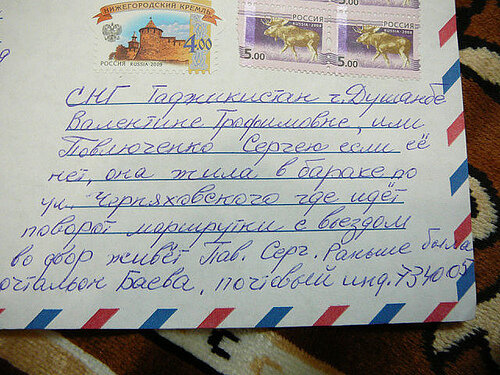 НИЖЕГОРОДСКИЙ КРЕМЛЬ
4.00
РОССИЯ RUSSIA 2009
РОССИЯ
5.00
РОССИЯ
5.00
СНГ Таджикистан г. Душанбе
Валентине Трофимовне, или
Повлюченко Сергею если её
нет, она жила в бараке по
ул. Черняховского где идёт
поворот маршрутки с въездом
во двор живёт Пав. Серг. Раньше была
очтальон Баева, почтовый инд. 734005